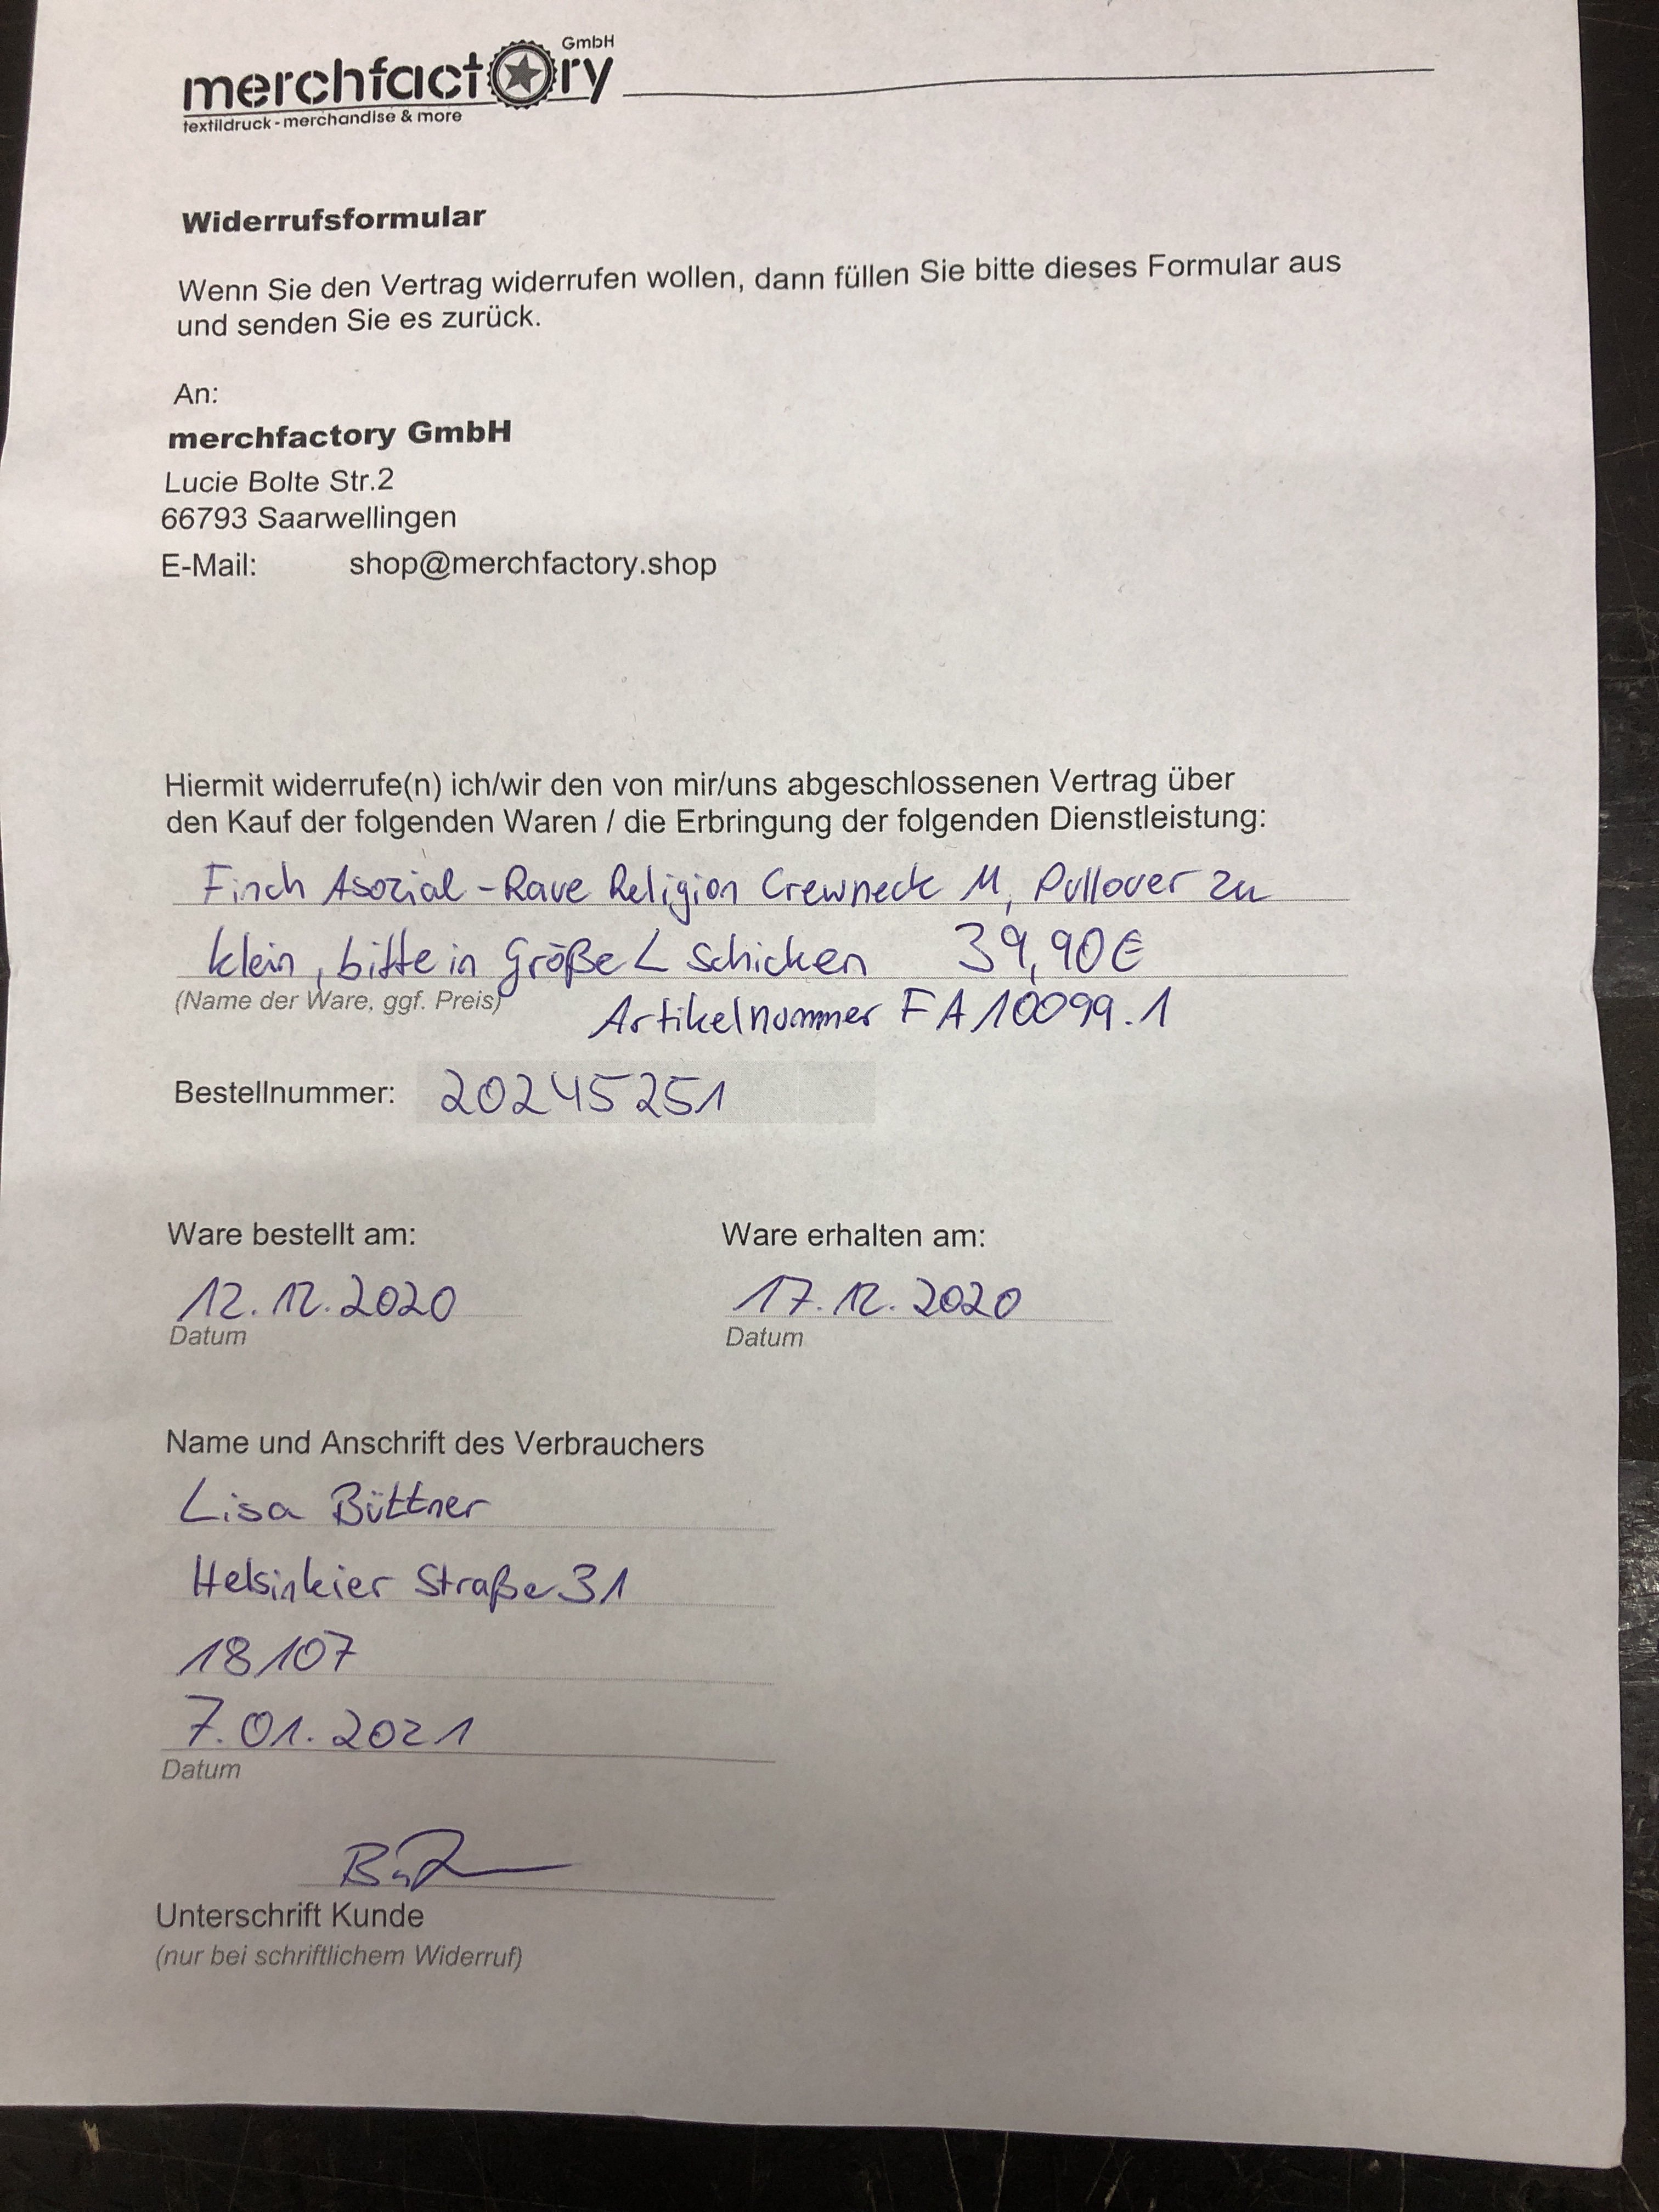 merchfactory GmbH
textildruck - merchandise & more
Widerrufsformular
Wenn Sie den Vertrag widerrufen wollen, dann füllen Sie bitte dieses Formular aus
und senden Sie es zurück.
An:
merchfactory GmbH
Lucie Bolte Str.2
66793 Saarwellingen
E-Mail: shop@merchfactory.shop
Hiermit widerrufe(n) ich/wir den von mir/uns abgeschlossenen Vertrag über
den Kauf der folgenden Waren / die Erbringung der folgenden Dienstleistung:
Finch Asozial - Rave Religion Crewneck M, Pullover zu
klein, bitte in Größe L schicken 39,90€
(Name der Ware, ggf. Preis)
Artikelnummer FA10099.1
Bestellnummer: 20245251
Ware bestellt am: Ware erhalten am:
12.12.2020 17.12.2020
Datum Datum
Name und Anschrift des Verbrauchers
Lisa Büttner
Helsinkier Straße 31
18107
7.01.2021
Datum
Unterschrift Kunde
(nur bei schriftlichem Widerruf)